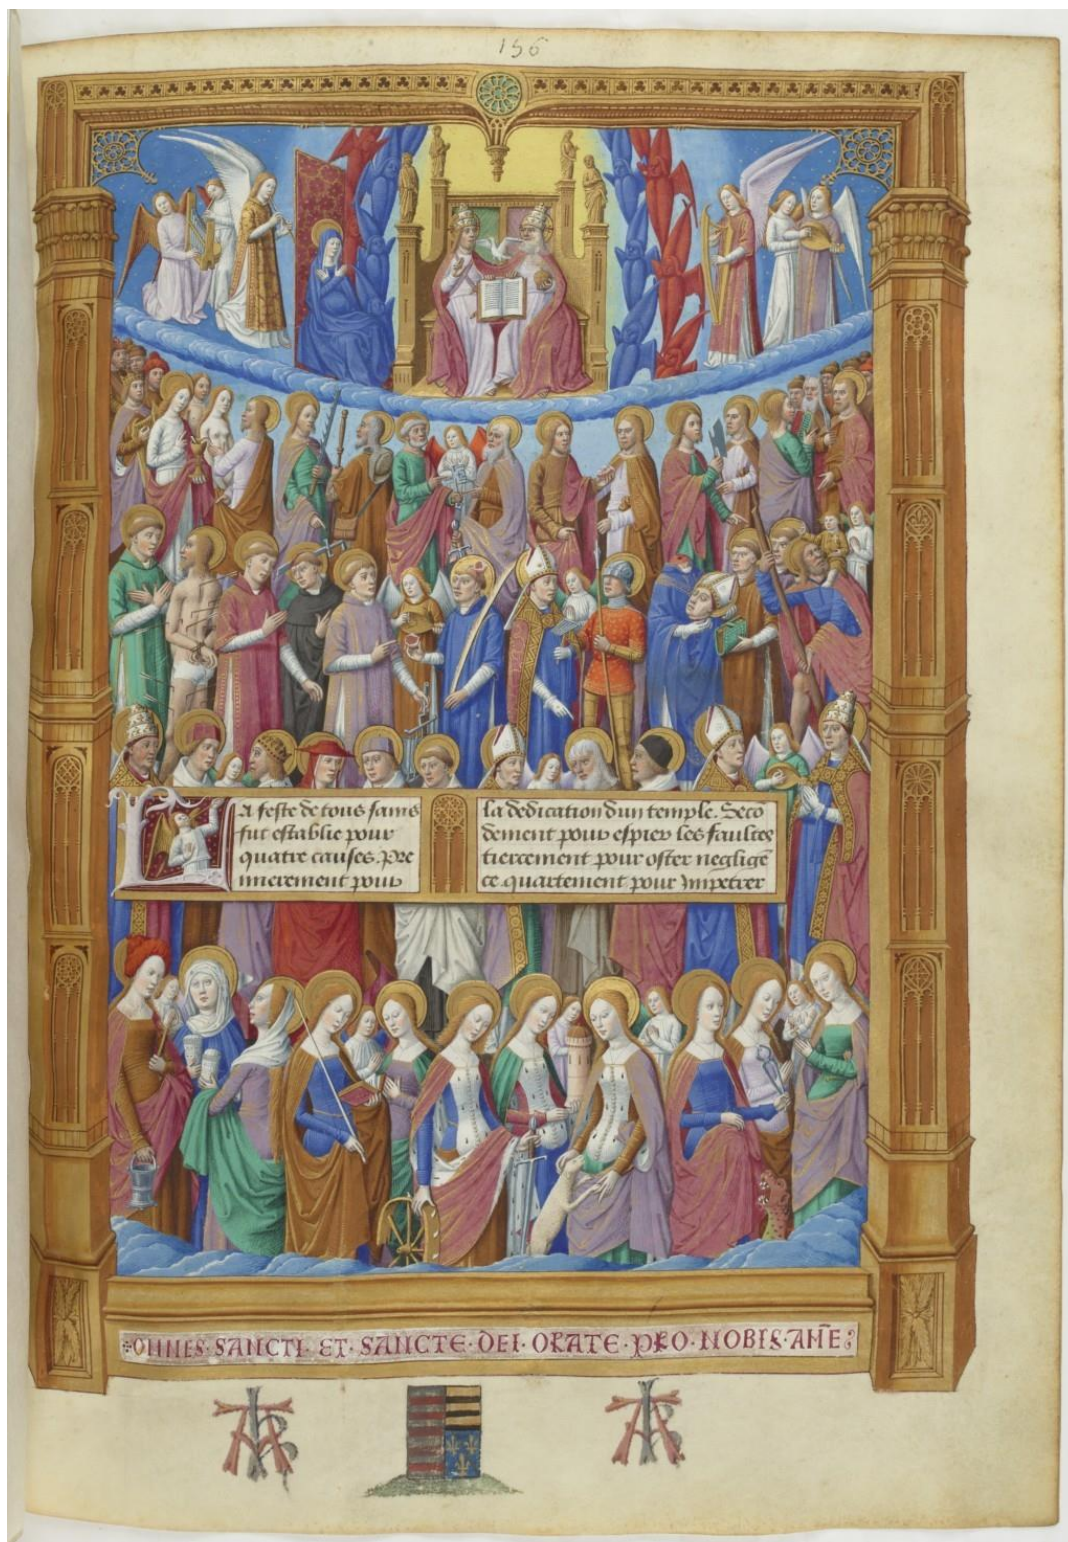 156
La feste de tous sains
fut establie pour
quatre causes. Pre
mierement pour
la dedication dun temple. Seco
dement pour espier les faultes
tiercement pour oster neglige
ce. quartement pour impetrer
OMNES · SANCTI · ET · SANCTE · DEI · ORATE · PRO · NOBIS · AME